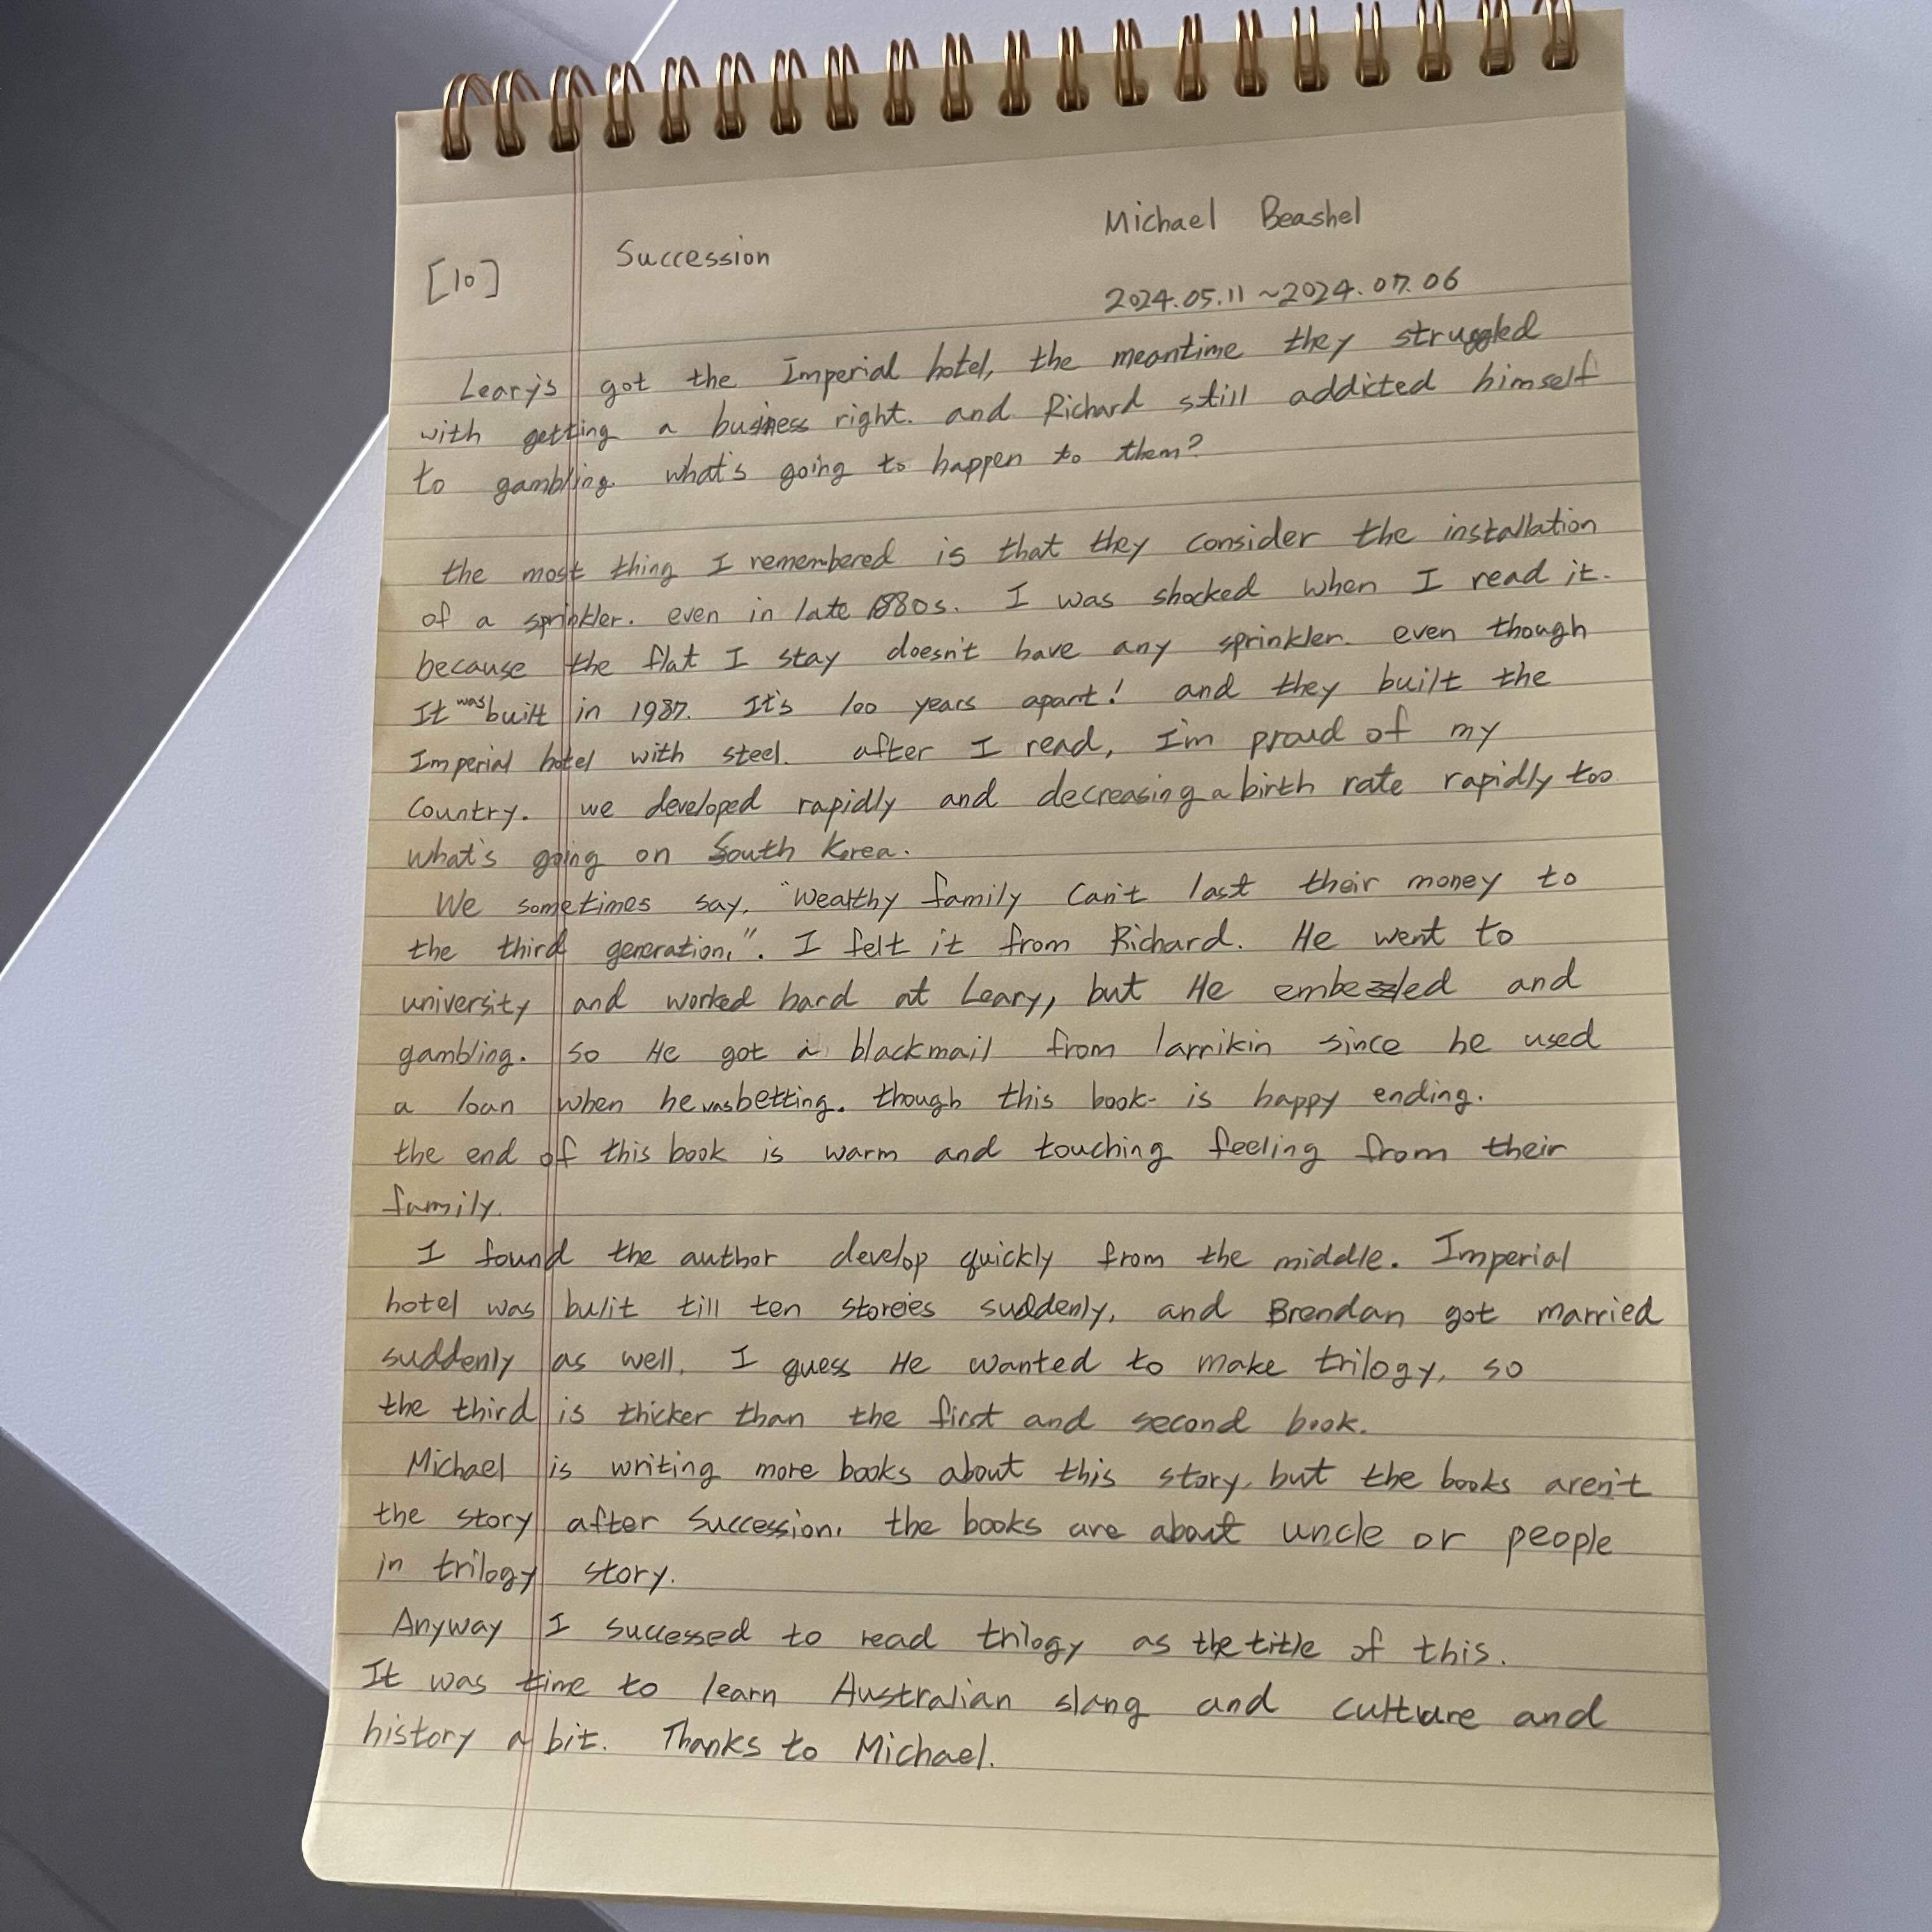 Michael Beashel
[10] Succession
2024.05.11 ~2024.07.06
Leary's got the Imperial hotel, the meantime they struggled
with getting a business right. and Richard still addicted himself
to gambling. what's going to happen to them?
the most thing I remembered is that they consider the installation
of a sprinkler. even in late 1880s. I was shocked when I read it.
because the flat I stay doesn't have any sprinkler. even though
It was built in 1987. It's 100 years apart! and they built the
Imperial hotel with steel. after I read, I'm proud of my
Country. we developed rapidly and decreasing a birth rate rapidly too
what's going on South Korea.
We sometimes say, "Wealthy family can't last their money to
the third generation,". I felt it from Richard. He went to
university and worked hard at Leary, but He embezzled and
gambling. so He got a blackmail from larrikin since he used
a loan when he was betting. though this book is happy ending.
the end of this book is warm and touching feeling from their
family.
I found the author develop quickly from the middle. Imperial
hotel was bulit till ten storeies suddenly, and Brendan got married
suddenly as well. I guess He wanted to make trilogy, so
the third is thicker than the first and second book.
Michael is writing more books about this story, but the books aren't
the story after Succession, the books are about uncle or people
in trilogy story.
Anyway I successed to read trilogy as the title of this.
It was time to learn Australian slang and culture and
history a bit. Thanks to Michael.